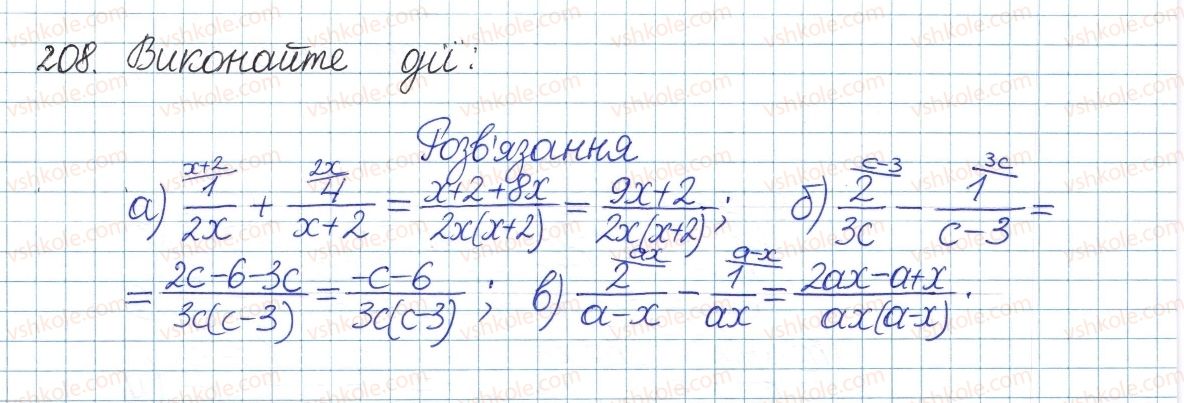 208. Виконайте дії:
Розв'язання
а) 1/2x (x+2) + 4/x+2 (2x) = x+2+8x/2x(x+2) = 9x+2/2x(x+2); б) 2/3c (c-3) - 1/c-3 (3c) =
= 2c-6-3c/3c(c-3) = -c-6/3c(c-3); в) 2/a-x (ax) - 1/ax (a-x) = 2ax-a+x/ax(a-x).